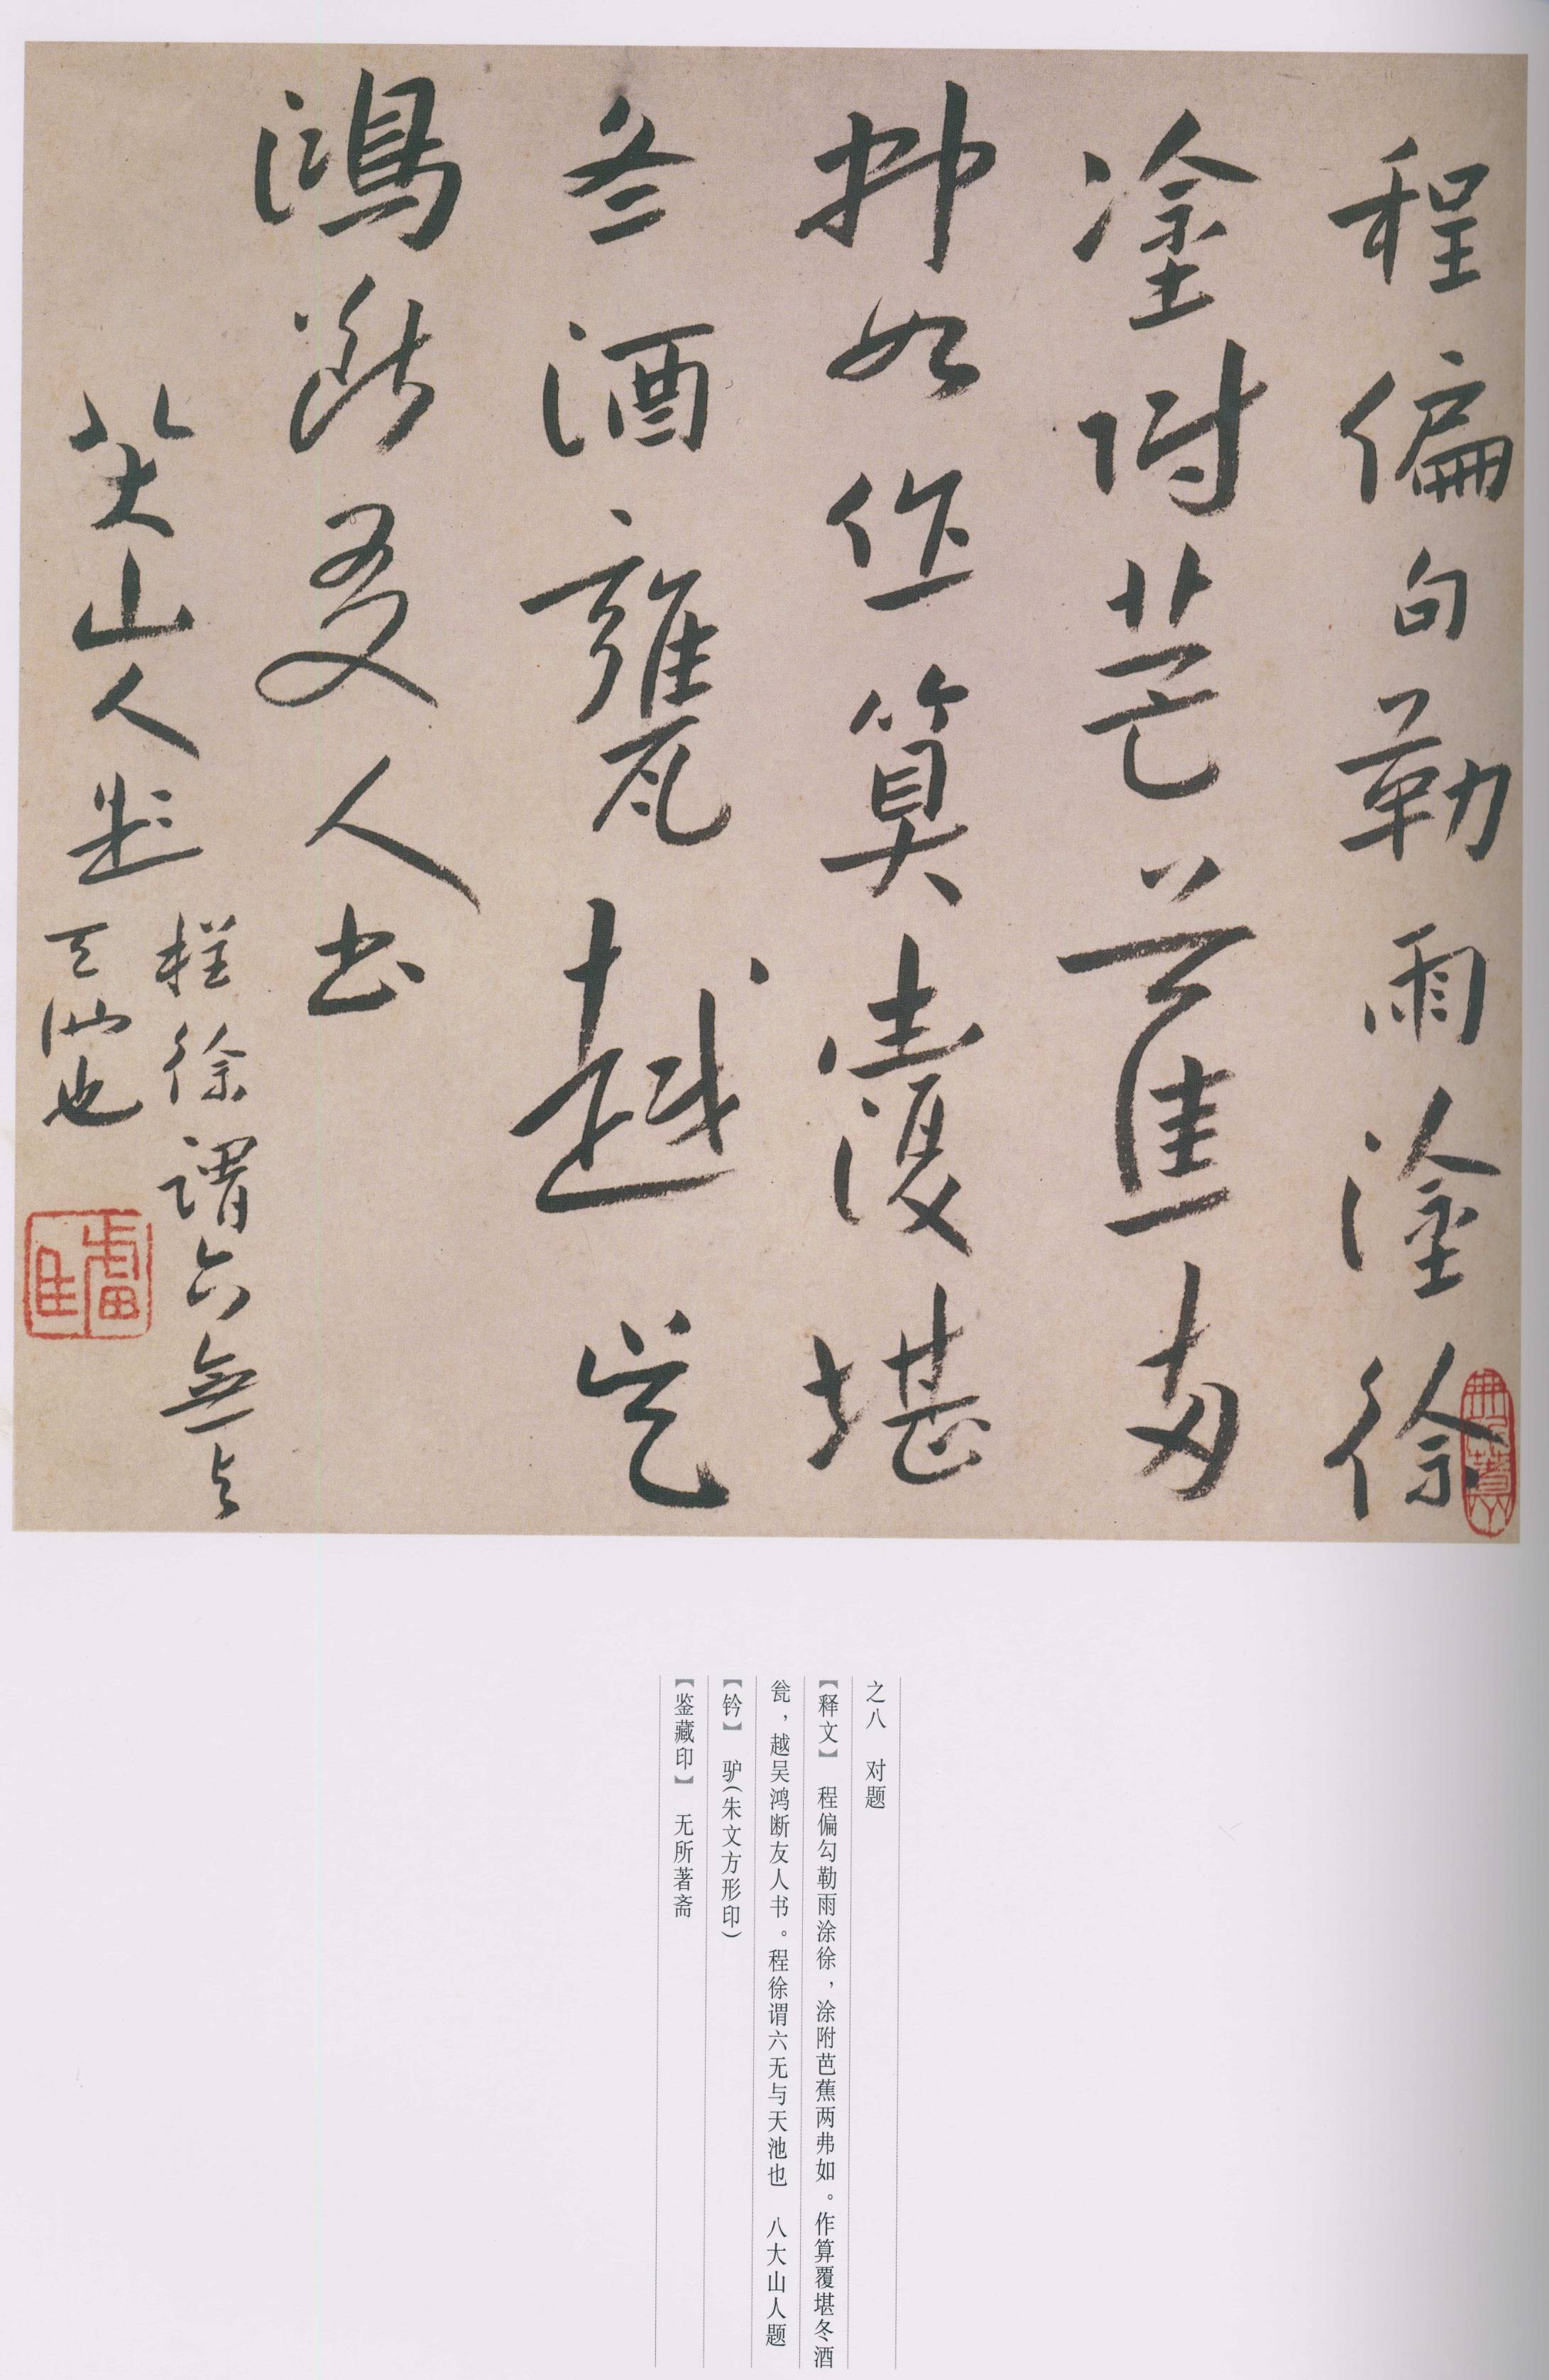 程偏勾勒雨塗徐
塗附芭蕉两
弗如作算覆堪
冬酒甕越吴
鴻斷友人书
八大山人题
程徐謂六無与
天池也
之八 对题
【释文】 程偏勾勒雨涂徐，涂附芭蕉两弗如。作算覆堪冬酒
瓮，越吴鸿断友人书。程徐谓六无与天池也 八大山人题
【钤】 驴(朱文方形印)
【鉴藏印】 无所著斋